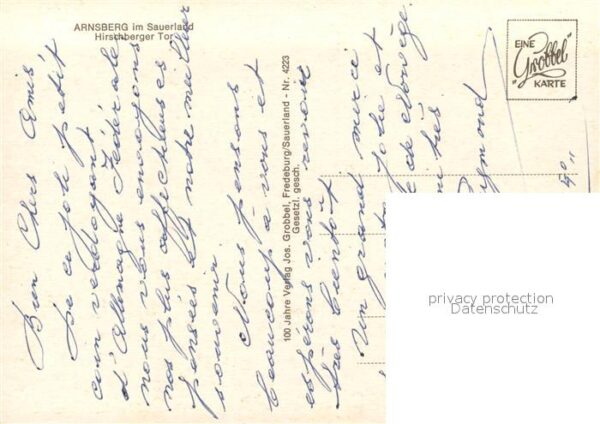 ARNSBERG im Sauerland
Hirschberger Tor
EINE
"Grobbel"
KARTE
Bien Chers Amis
De ce joli petit
coin verdoyant
d'Allemagne Fédérale
nous vous envoyons
nos plus affectueuses
pensées et notre meilleur
souvenir.
Nous pensons
beaucoup à vous et
espérons vous revoir
très bientôt
Un grand merci
jolie et
de Norvège.
100 Jahre Verlag Jos. Grobbel, Fredeburg/Sauerland - Nr. 4223
Gesetzl. gesch.
privacy protection
Datenschutz